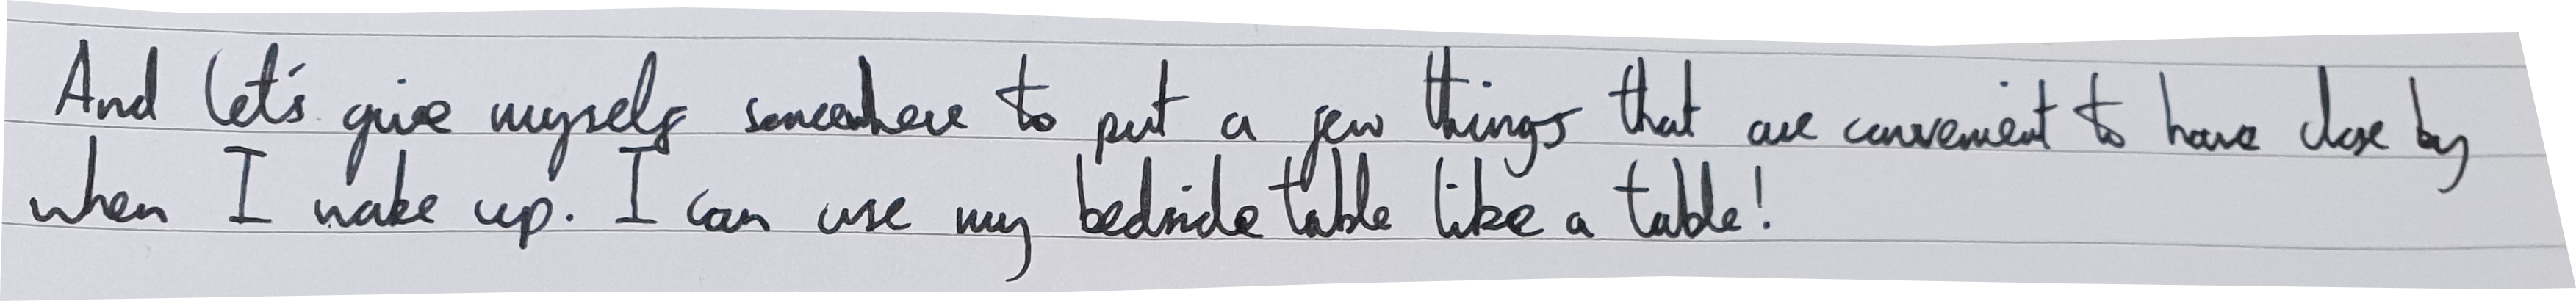 And let's give myself somewhere to put a few things that are convenient to have close by
when I wake up. I can use my bedside table like a table!